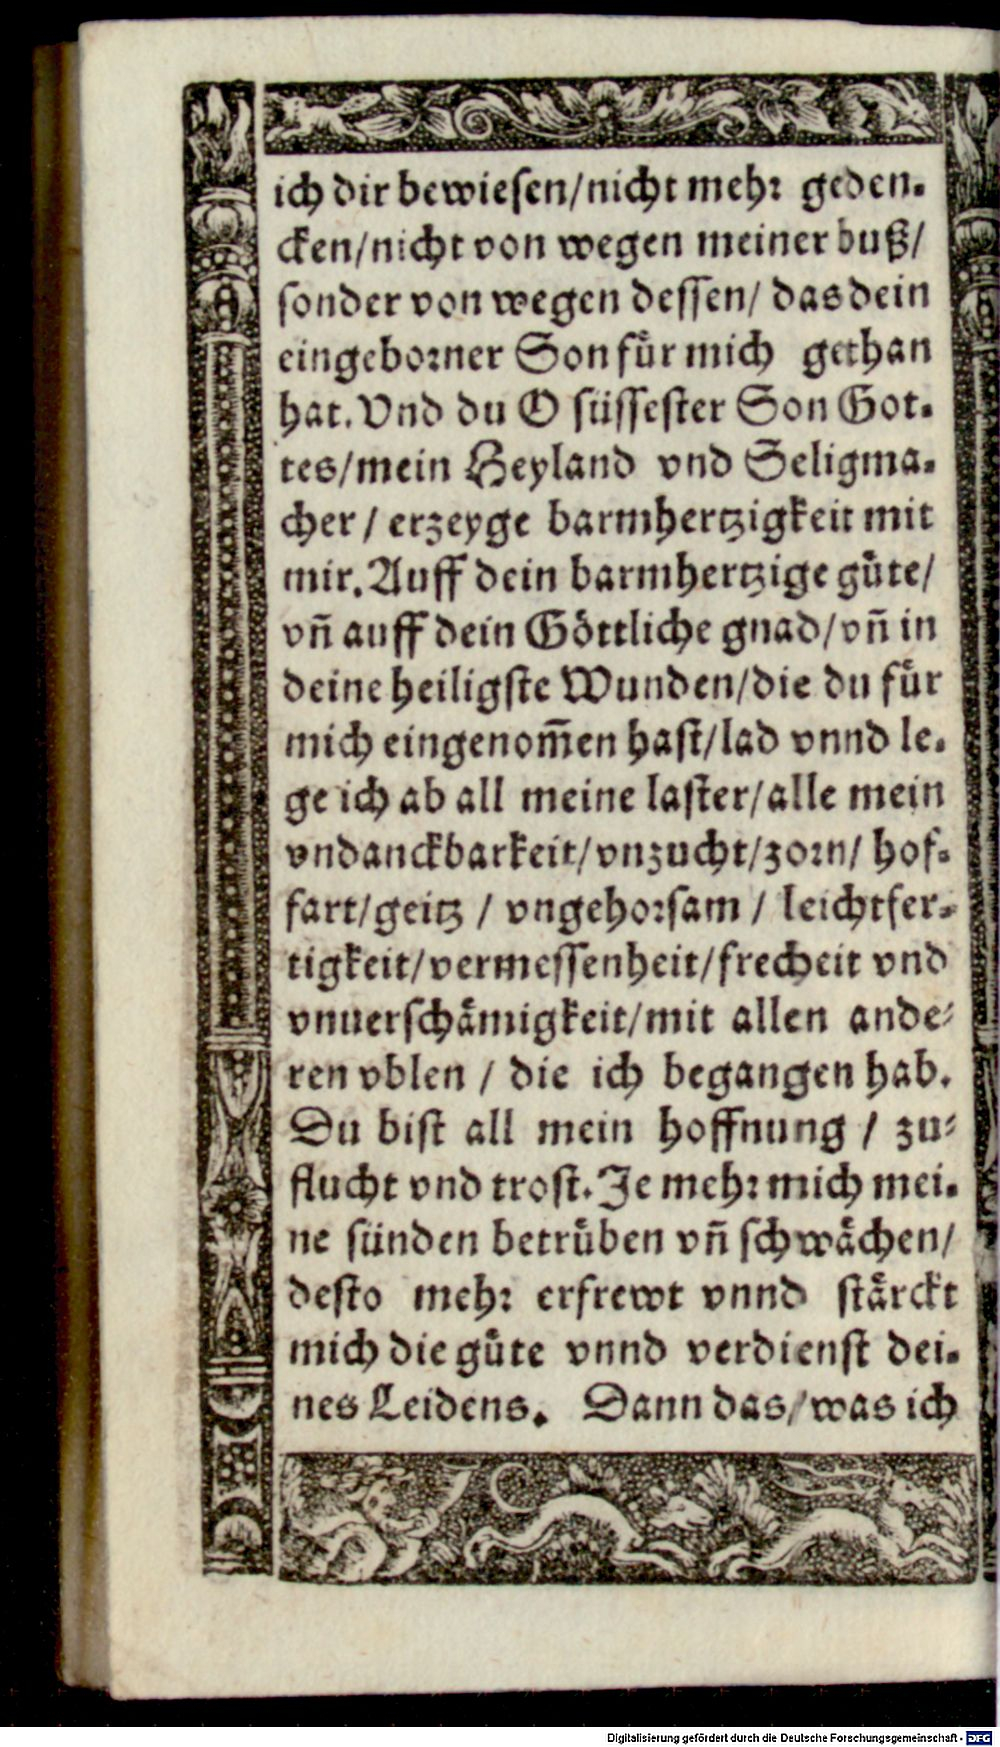 ich dir bewiesen/nicht mehr geden-
cken/nicht von wegen meiner buß/
sonder von wegen dessen/ das dein
eingeborner Son fůr mich gethan
hat. Vnd du O süssester Son Got-
tes/mein Heyland vnd Seligma-
cher / erzeyge barmhertzigkeit mit
mir. Auff dein barmhertzige gůte/
vñ auff dein Göttliche gnad/vñ in
deine heiligste Wunden/die du fůr
mich eingenom̃en hast/lad vnnd le-
ge ich ab all meine laster/alle mein
vndanckbarkeit/vnzucht/zorn/ hof-
fart/geitz / vngehorsam / leichtfer-
tigkeit/vermessenheit/frecheit vnd
vnuerschämigkeit/mit allen ande-
ren vblen / die ich begangen hab.
Du bist all mein hoffnung / zu-
flucht vnd trost. Je mehr mich mei-
ne sünden betrůben vñ schwächen/
desto mehr erfrewt vnnd stärckt
mich die gůte vnnd verdienst dei-
nes Leidens. Dann das/was ich
Digitalisierung gefördert durch die Deutsche Forschungsgemeinschaft - DFG